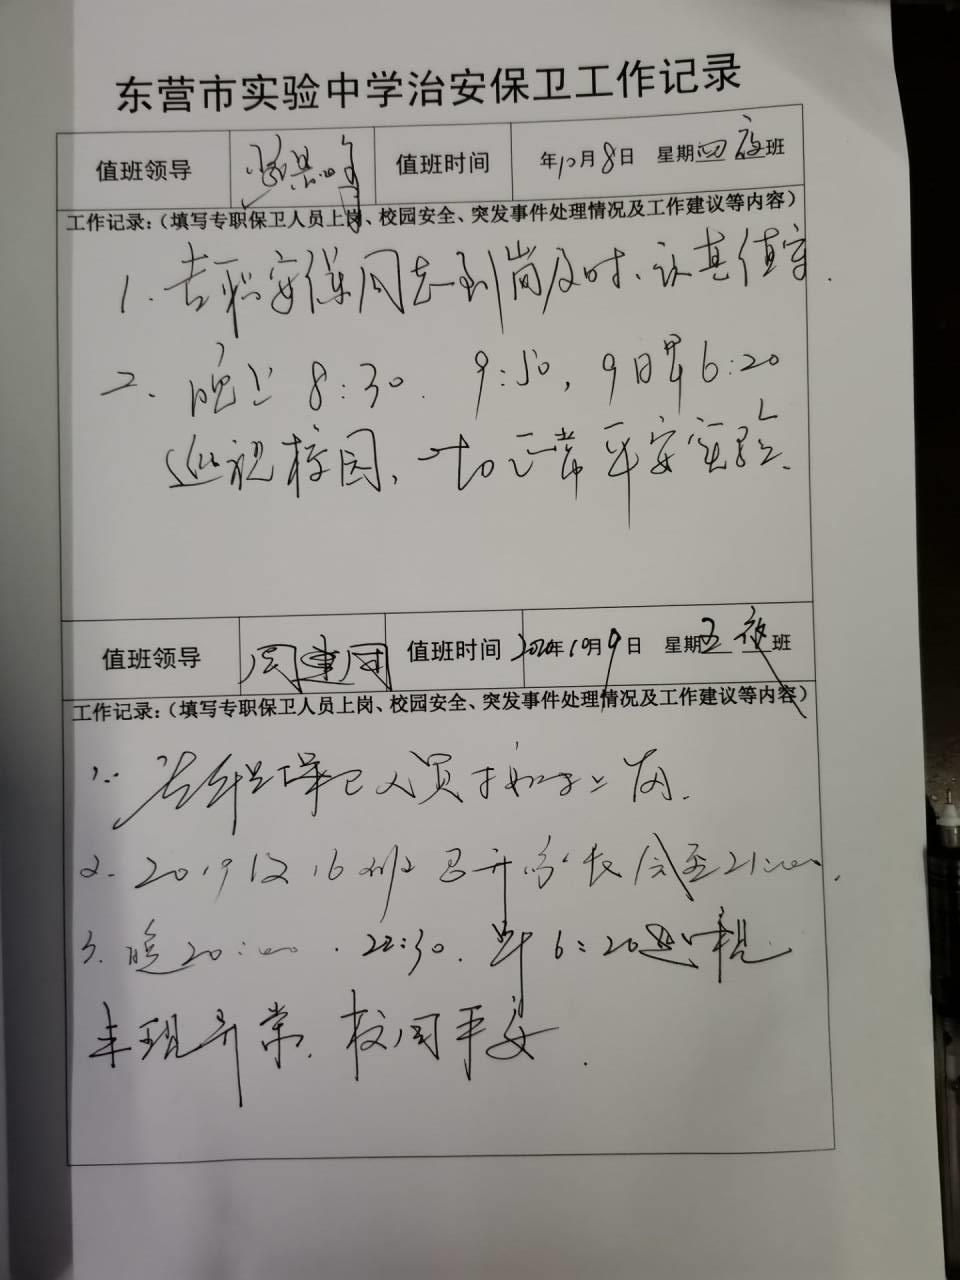 东营市实验中学治安保卫工作记录
值班领导 值班时间 年10月8日 星期四夜班
工作记录:(填写专职保卫人员上岗、校园安全、突发事件处理情况及工作建议等内容)
1. 专职安保同志到岗及时、认真值守.
2. 晚上8:30. 9:50, 9日早6:20
巡视校园, 一切正常平安实验.
值班领导 周建国 值班时间 2020年10月9日 星期五夜班
工作记录:(填写专职保卫人员上岗、校园安全、突发事件处理情况及工作建议等内容)
1. 保卫人员 岗.
2. 2019级16班召开家长会至21:00.
3. 晚20:00. 22:30. 早6:20巡视
未现异常. 校园平安.